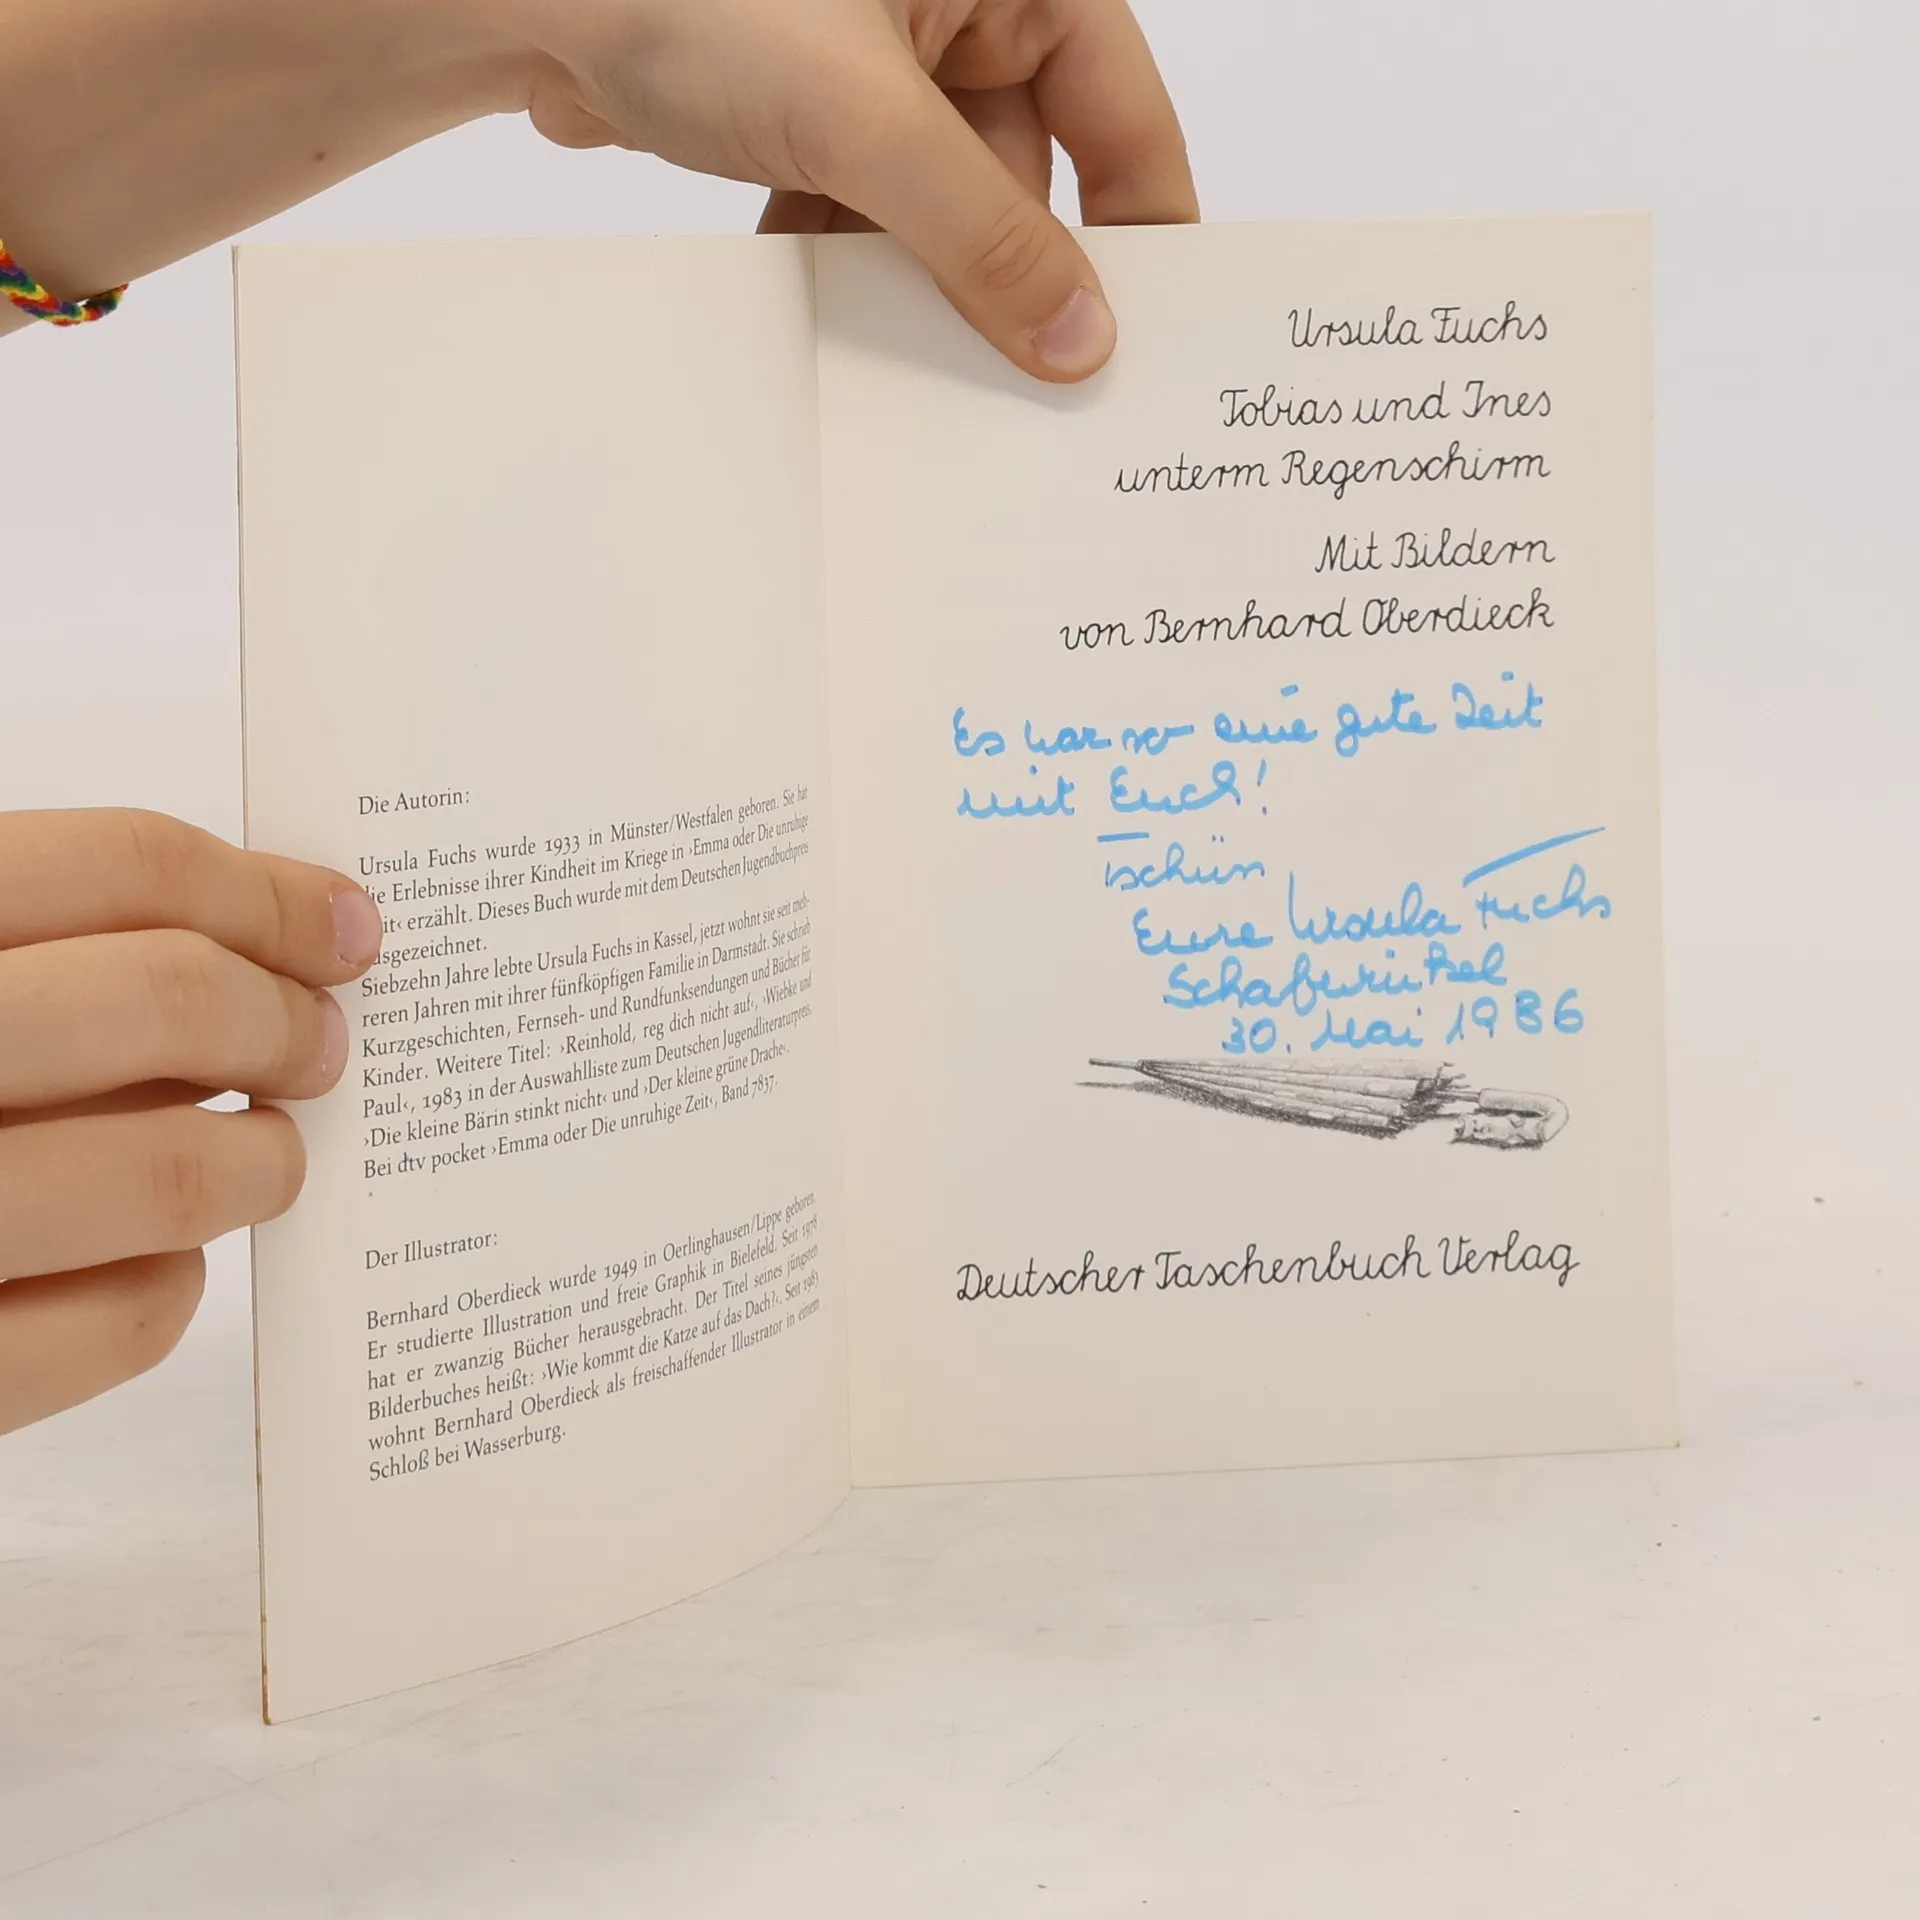 Die Autorin:
Ursula Fuchs wurde 1933 in Münster/Westfalen geboren. Sie hat
die Erlebnisse ihrer Kindheit im Kriege in ›Emma oder Die unruhige
eit‹ erzählt. Dieses Buch wurde mit dem Deutschen Jugendbuchpreis
usgezeichnet.
Siebzehn Jahre lebte Ursula Fuchs in Kassel, jetzt wohnt sie seit meh-
reren Jahren mit ihrer fünfköpfigen Familie in Darmstadt. Sie schrieb
Kurzgeschichten, Fernseh- und Rundfunksendungen und Bücher für
Kinder. Weitere Titel: ›Reinhold, reg dich nicht auf‹, ›Wiebke und
Paul‹, 1983 in der Auswahlliste zum Deutschen Jugendliteraturpreis,
›Die kleine Bärin stinkt nicht‹ und ›Der kleine grüne Drache‹.
Bei dtv pocket ›Emma oder Die unruhige Zeit‹, Band 7837.
Der Illustrator:
Bernhard Oberdieck wurde 1949 in Oerlinghausen/Lippe geboren.
Er studierte Illustration und freie Graphik in Bielefeld. Seit 1978
hat er zwanzig Bücher herausgebracht. Der Titel seines jüngsten
Bilderbuches heißt: ›Wie kommt die Katze auf das Dach?‹. Seit 1983
wohnt Bernhard Oberdieck als freischaffender Illustrator in einem
Schloß bei Wasserburg.
Ursula Fuchs
Tobias und Ines
unterm Regenschirm
Mit Bildern
von Bernhard Oberdieck
Es war so eine gute Zeit
mit Euch!
Tschüs
Eure Ursula Fuchs
30. Mai 1986
Deutscher Taschenbuch Verlag